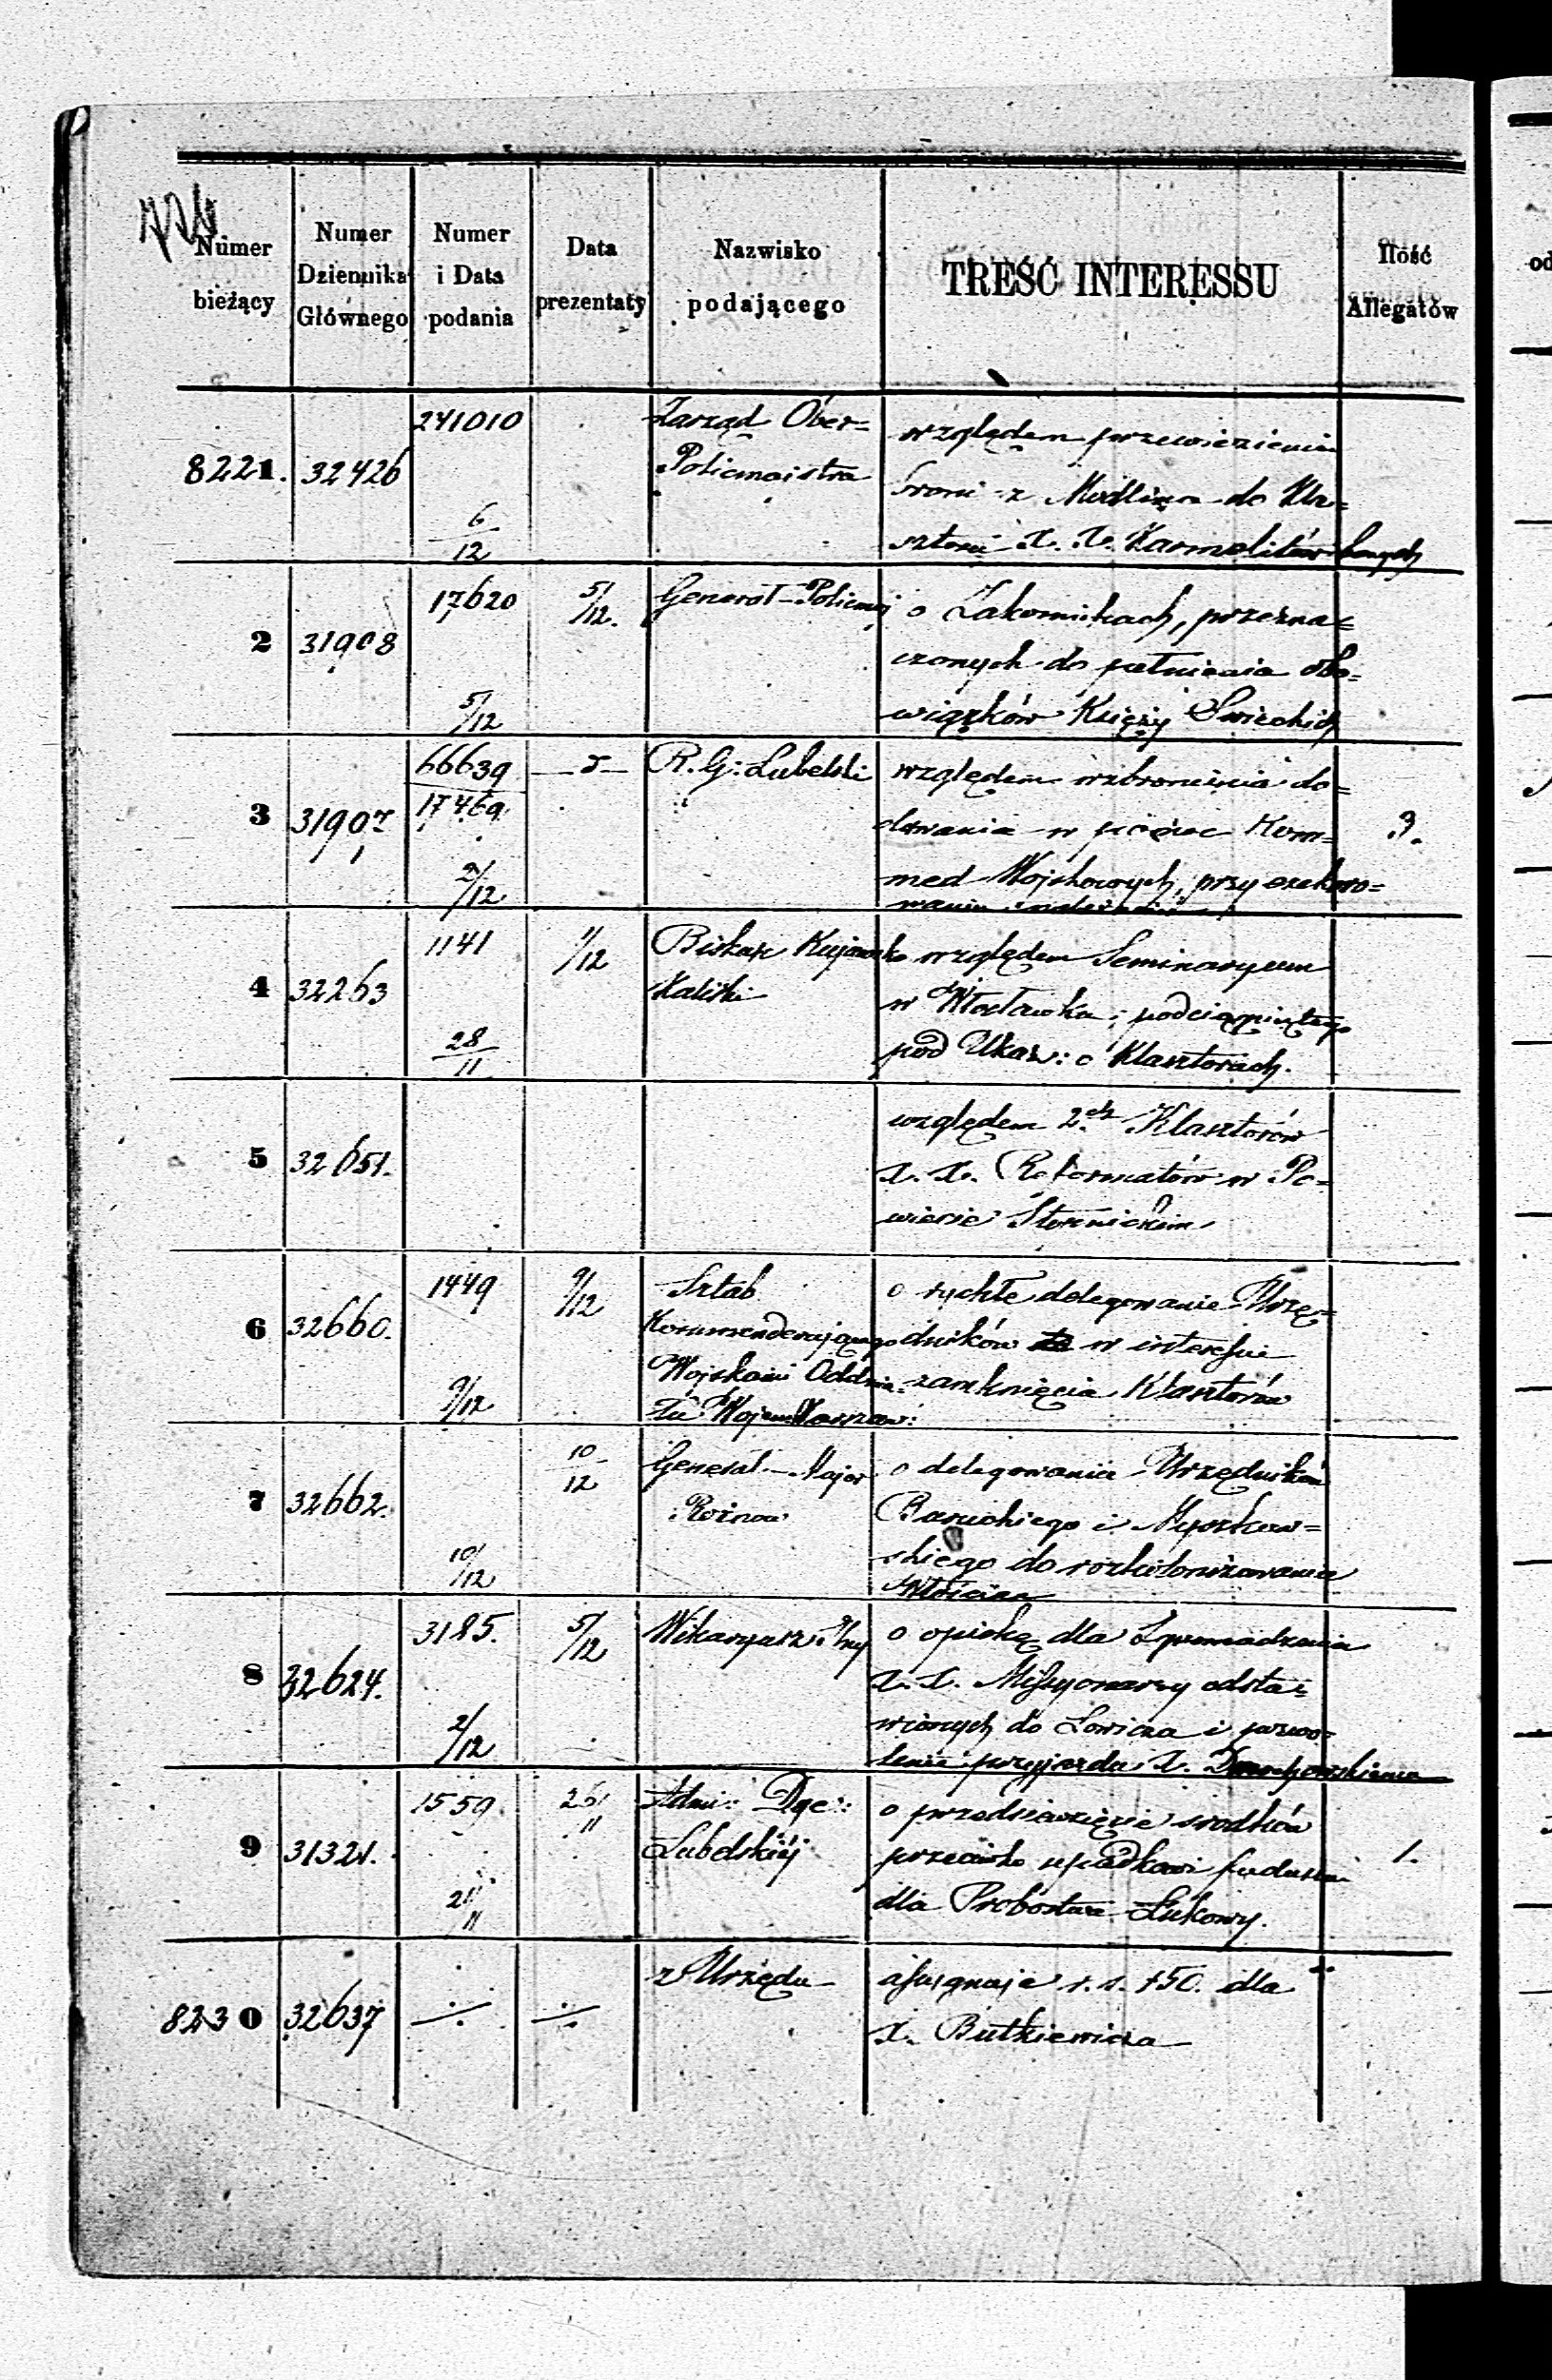 Numer bieżący
Numer Dziennika Głównego
Numer i Data podania
Data prezentaty
Nazwisko podającego
TREŚĆ INTERESSU
Ilość Allegatów
8221. 32426
241010
6/12
Zarząd Ober=
Policmajstra
względem przewiezienia
broni z Modlina do Kla=
sztoru X. X. Karmelitów
2 31908
17620
5/12
5/12.
Generał-Policmaj
o Zakonnikach, przezna=
czonych do pełnienia obo=
wiązków Księży Swieckich
3 31907
66639
17469
2/12
R. G. Lubelski
względem wzbronienia do=
dawania w pomoc Kom=
mend Wojskowych, przy exekwo=
waniu
3.
4 32263
1141
28/11
1/12
Biskup Kujawsko
Kaliski
względem Seminaryum
w Włocławku, podciągniętego
pod Ukaz: o Klasztorach.
5 32651.
względem 2.ch Klasztorów
X. X. Reformatów w Po=
wiecie Stopnickim
6 32660.
1449
9/12
9/12
Sztab
Kommenderującego
Wojskami Oddzia=
łu Wojen Warszaw:
o rychłe delegowanie Urzęd=
ników w interesie
zamknięcia Klasztorów
7 32662.
10/12
10/12
Generał-Major
Rożnow
o delegowanie Urzędników
i Myszkow=
skiego do rozkolonizowania
Włościan
8 32624.
3185.
2/12
5/12
Wikaryusz
o opiekę dla Zgromadzenia
X. X. Missyonarzy odsta=
wionych do Łowicza i pozwo=
lenie przyjazdu X.
9 31321.
1559
21/11
26/11
Admi: Dyec:
Lubelskiéj
o przedsiewzięcie srodków
przeciwko upadkowi funduszu
dla Probostwa Łukowy.
1.
8230 32637
z Urzędu
assygnuje r. s. 150. dla
X. Butkiewicza